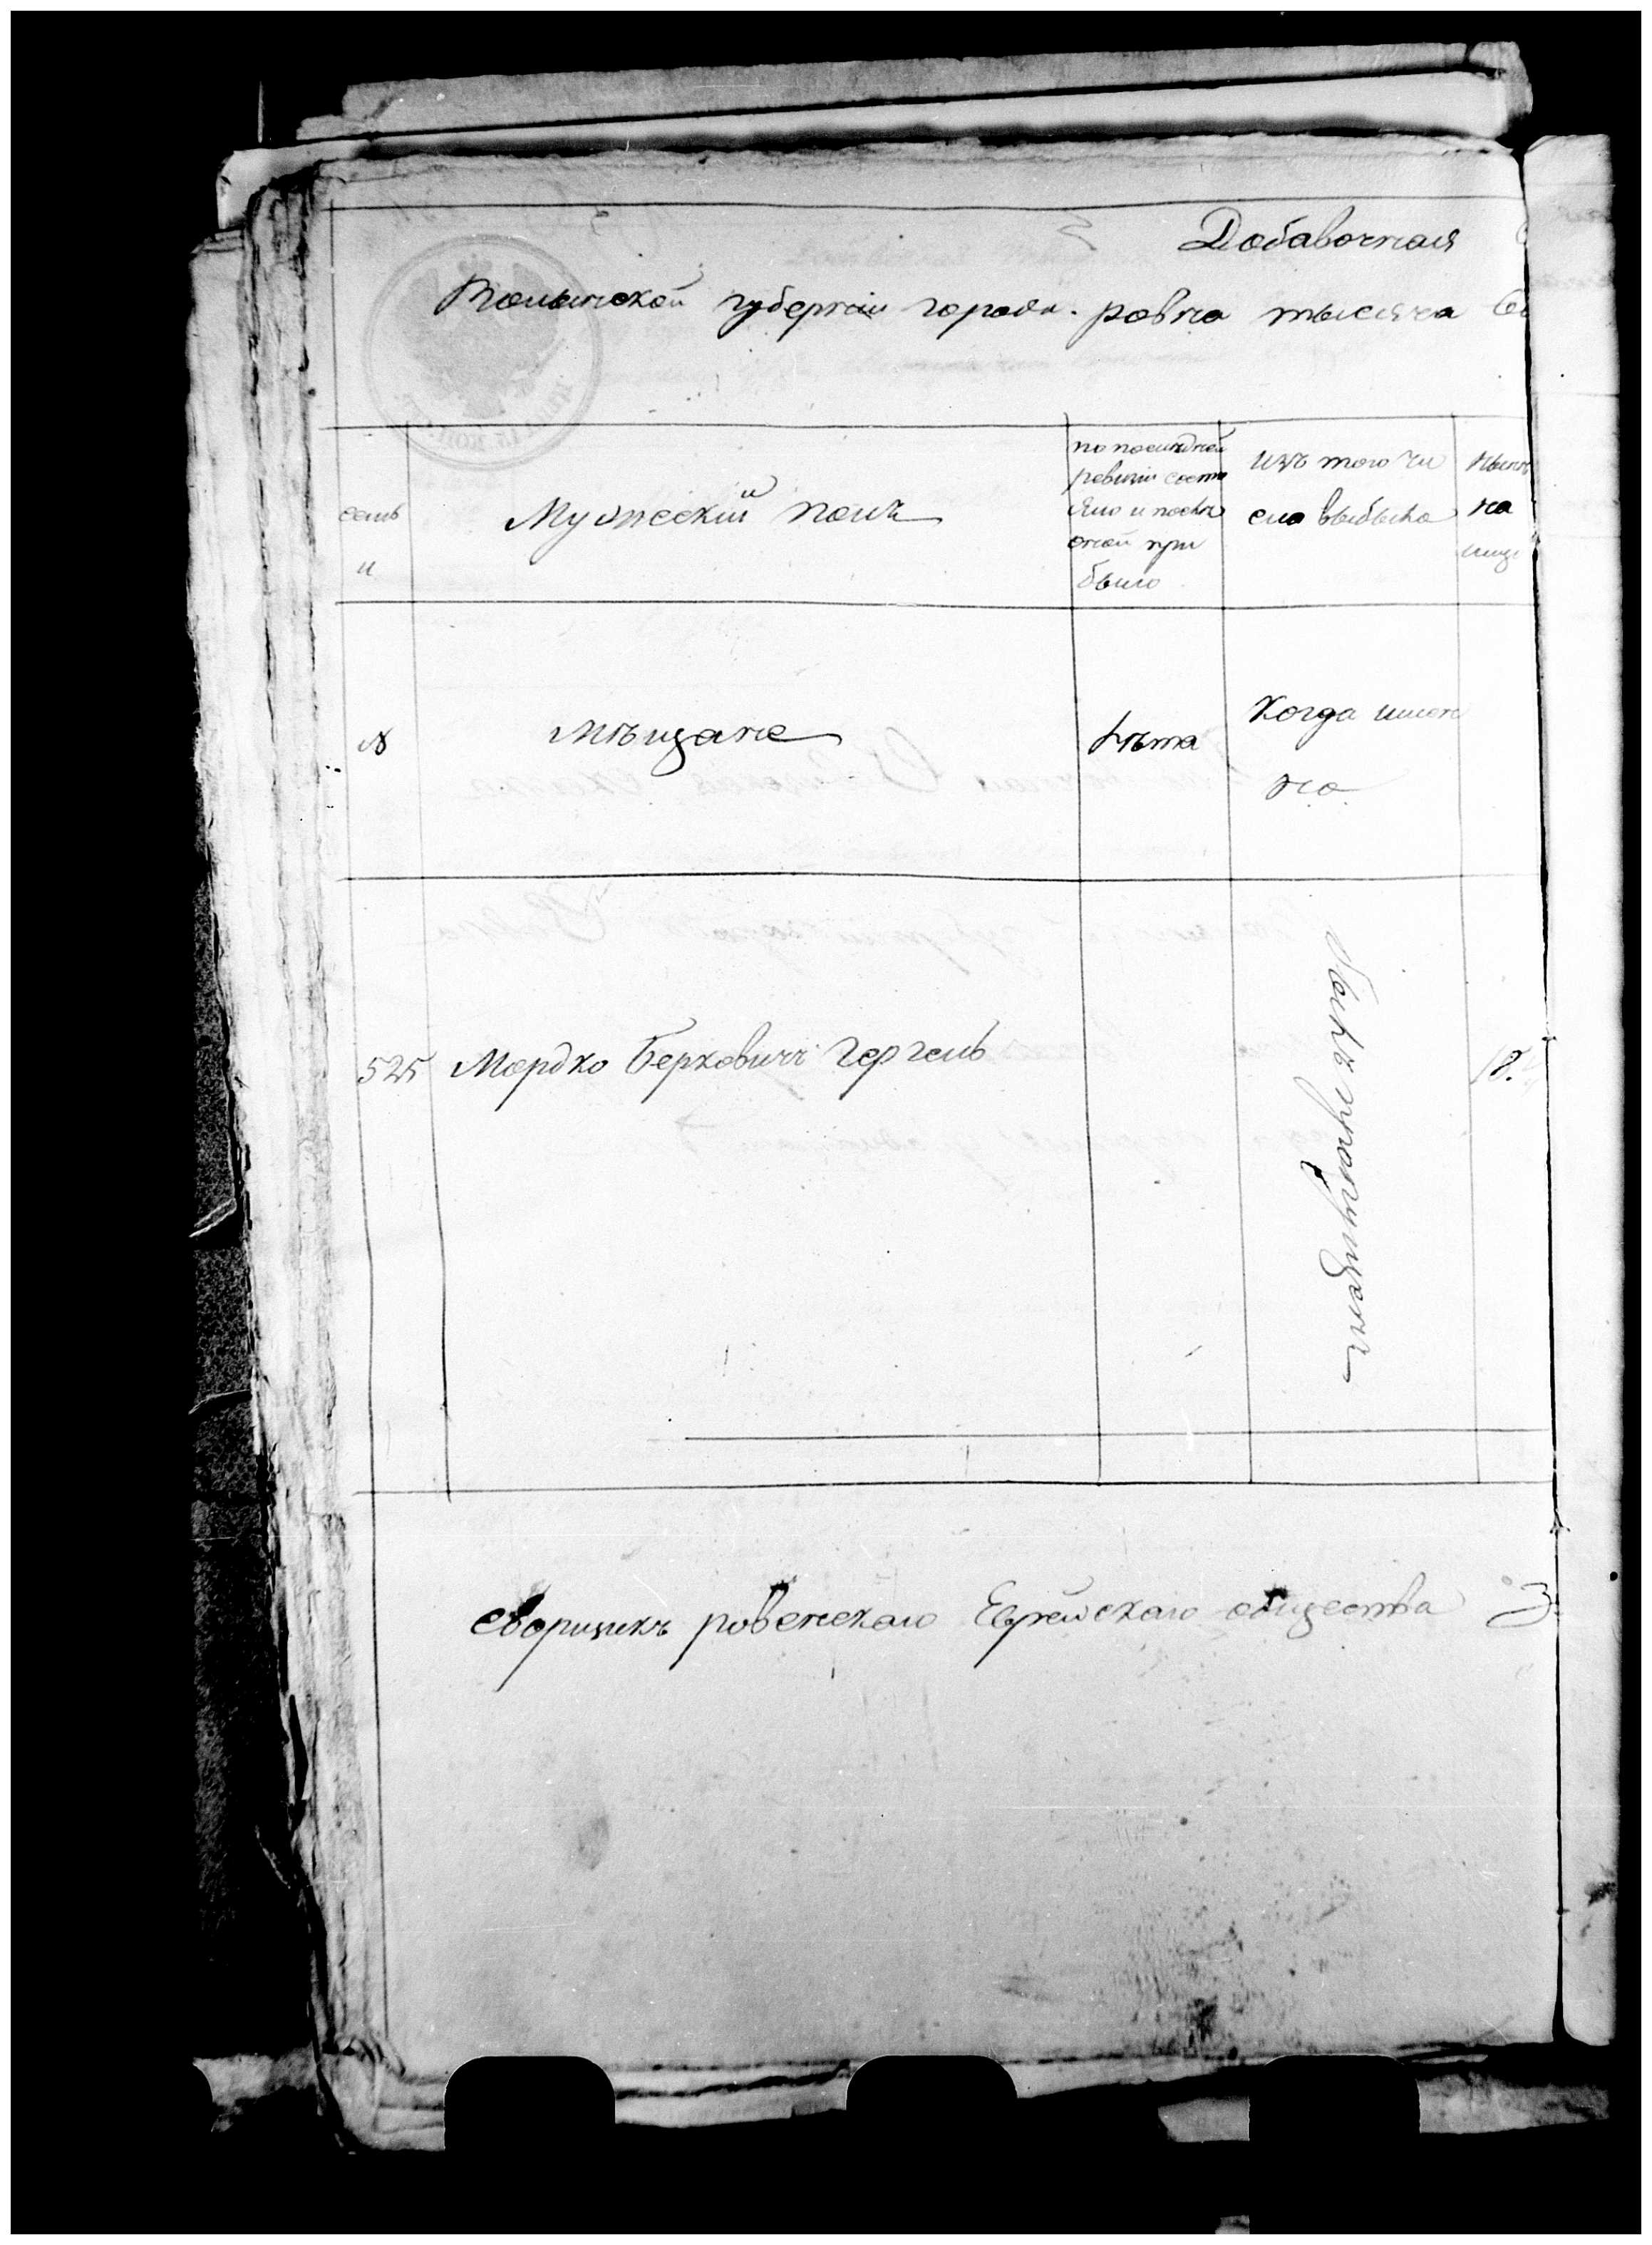 Добавочная
Волынской губернии города ровно тысяча
семь
и
Мужеский полъ
по последней
ревизии состо
яло и после
оной при
было
изъ того чи
сла выбыло
ныне
на
лицо
№
мѣщане
лѣта
Когда имен
но
525 Мордко Берковичъ Герчень
18.
сборщикъ ровенскаго Еврейскаго общества